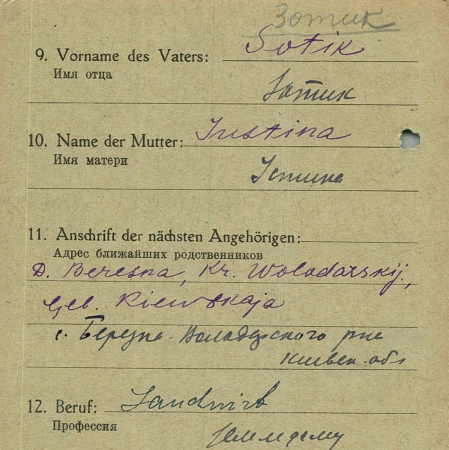 Зотик
9. Vorname des Vaters: Sotik
Имя отца
Зотик
10. Name der Mutter: Justina
Имя матери
Устина
11. Anschrift der nächsten Angehörigen:
Адрес ближайших родственников
D. Beresna, Kr. Wolodarskij,
Geb. Kiewskaja
с. Березна Володарского р-на
Киевск. обл
12. Beruf: Landwirt
Профессия